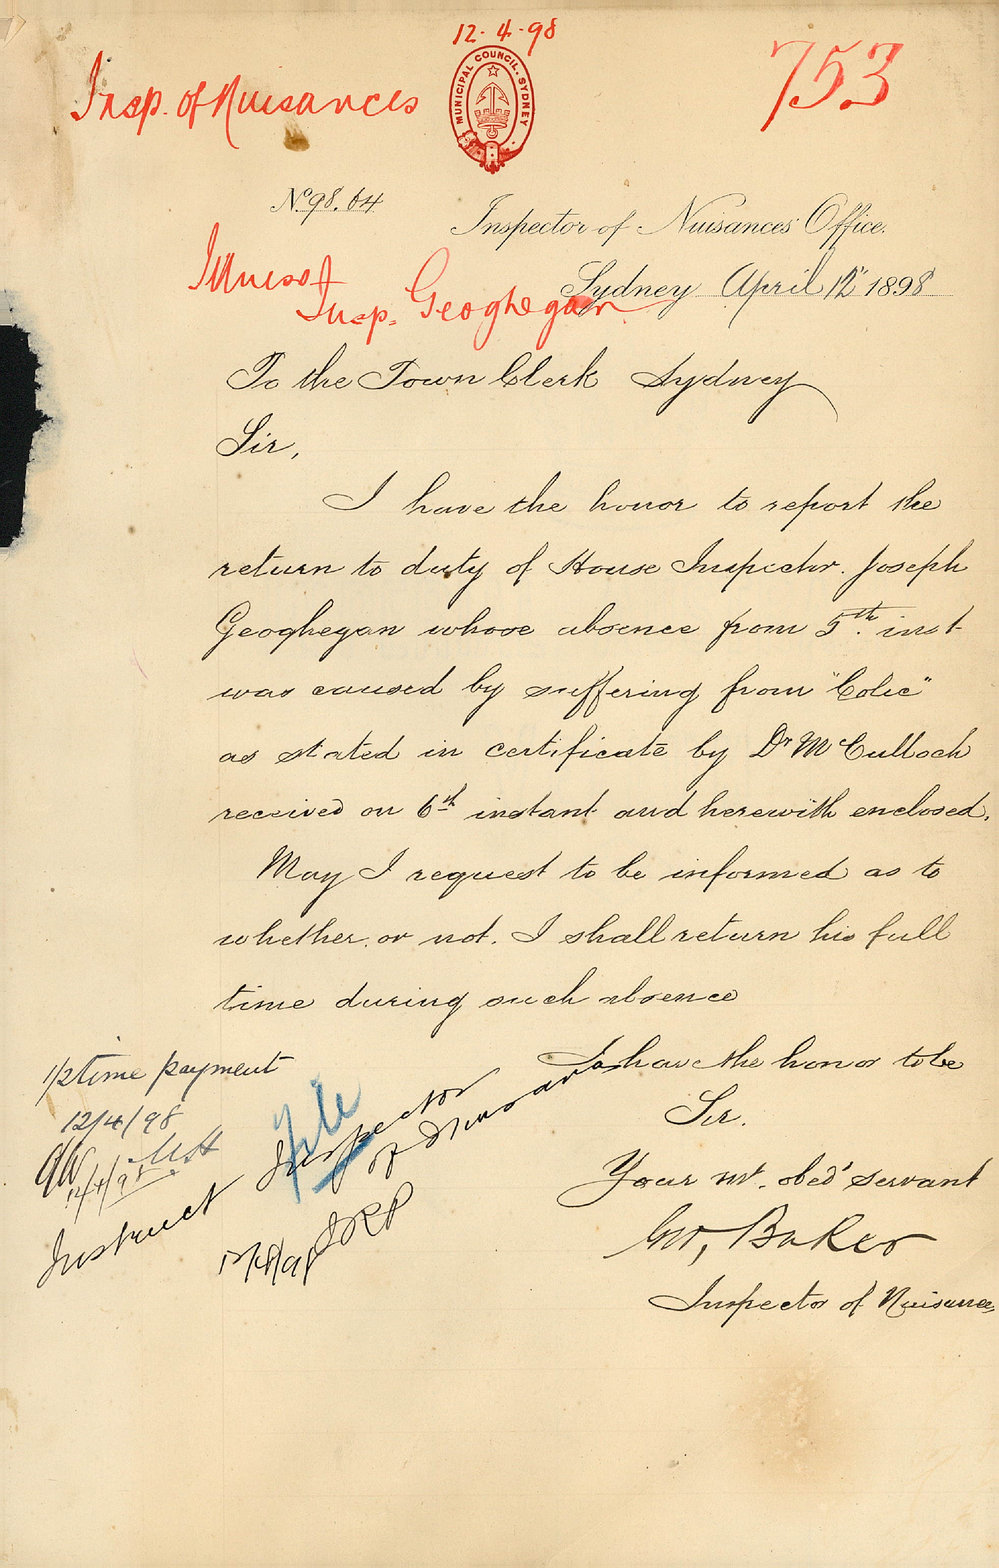 12.4.98
Insp. of Nuisances
753
MUNICIPAL COUNCIL. SYDNEY
No 98.64
Inspector of Nuisances Office.
Illness of
Insp. Geoghegan
Sydney April 12" 1898
To the Town Clerk Sydney
Sir,
I have the honor to report the
return to duty of House Inspector. Joseph
Geoghegan whose absence from 5th. inst
was caused by suffering from "Colic"
as stated in certificate by Dr McCulloch
received on 6th instant and herewith enclosed.
May I request to be informed as to
whether. or not. I shall return his full
time during such absence
I have the honor to be
Sir.
Your mt. obedt servant
Geo, Baker
Inspector of Nuisances
1/2 time payment
12/4/98
File
Instruct Inspector
of Nuisances